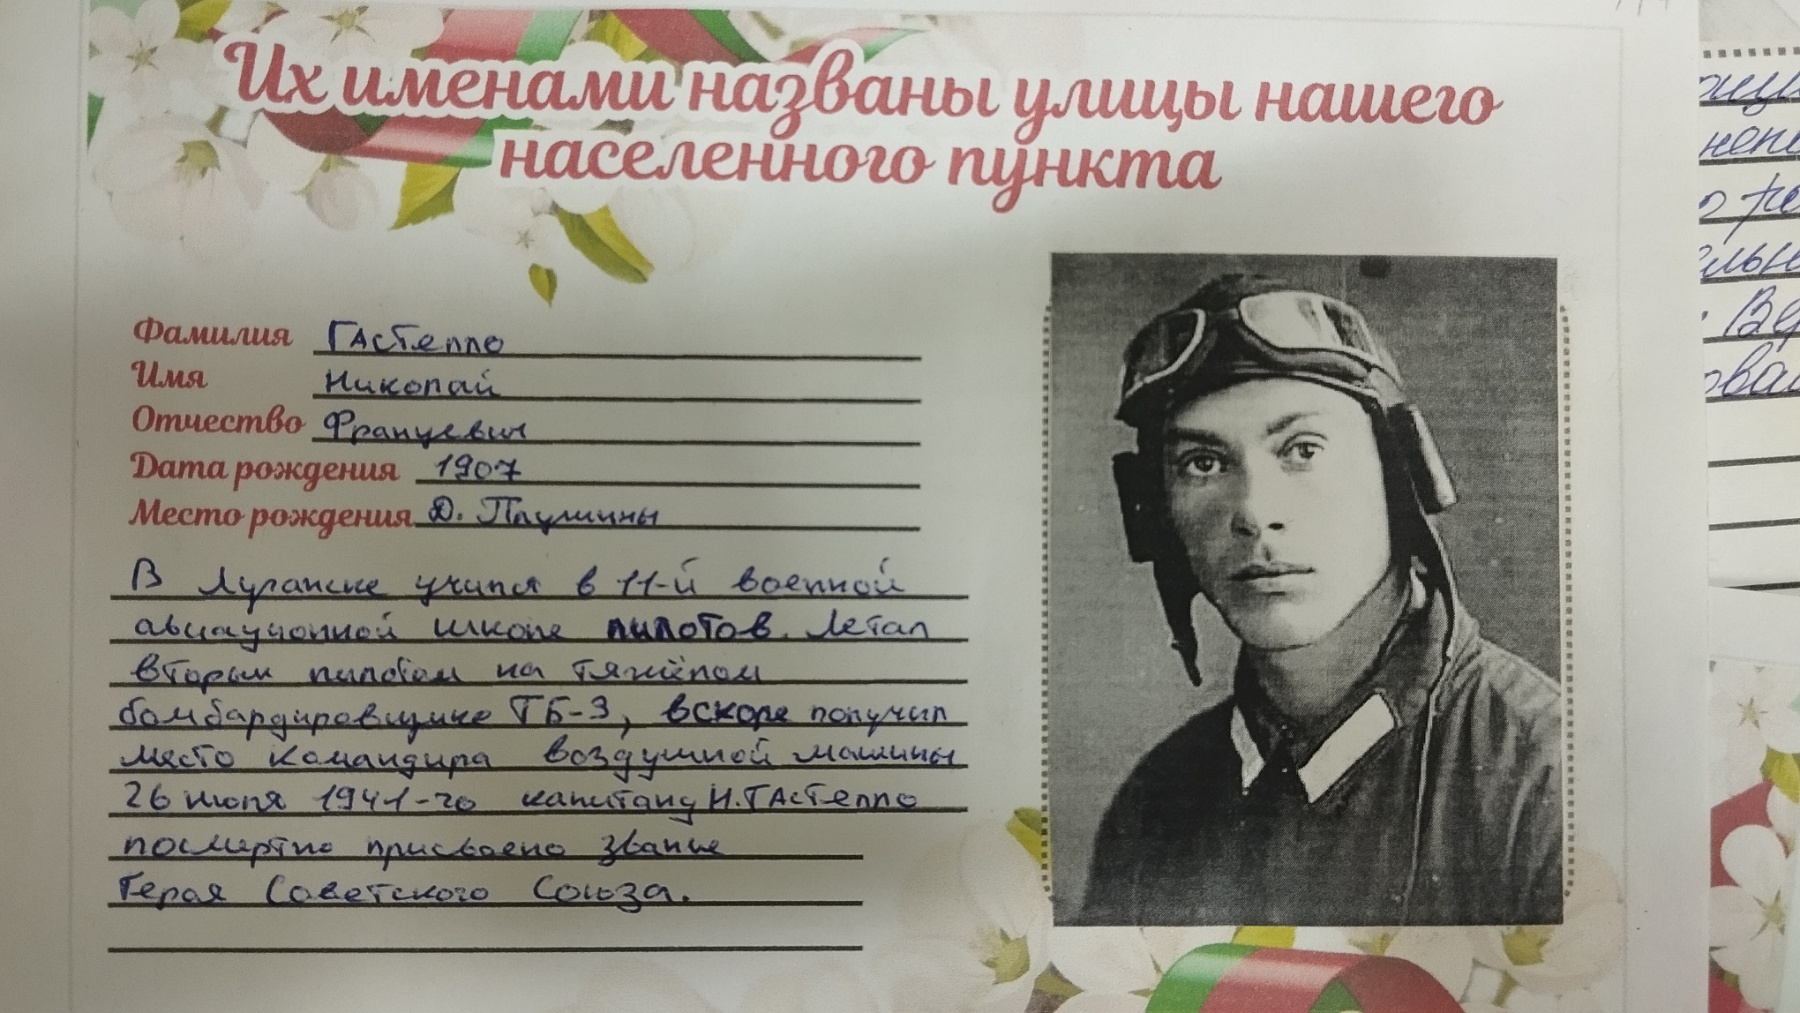 Их именами названы улицы нашего
населенного пункта
Фамилия Гастелло
Имя Николай
Отчество Францевич
Дата рождения 1907
Место рождения Д. Плушины
В Луганске учился в 11-й военной
авиационной школе пилотов. Летал
вторым пилотом на тяжёлом
бомбардировщике ТБ-3, вскоре получил
место командира воздушной машины
26 июля 1941-го капитану Н.Гастелло
посмертно присвоено звание
Героя Советского Союза.